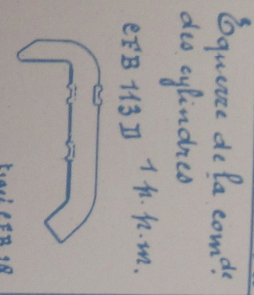 Equerre de la com.de
des cylindres
CFB 113 D 1 p.p.m.
CFB 18